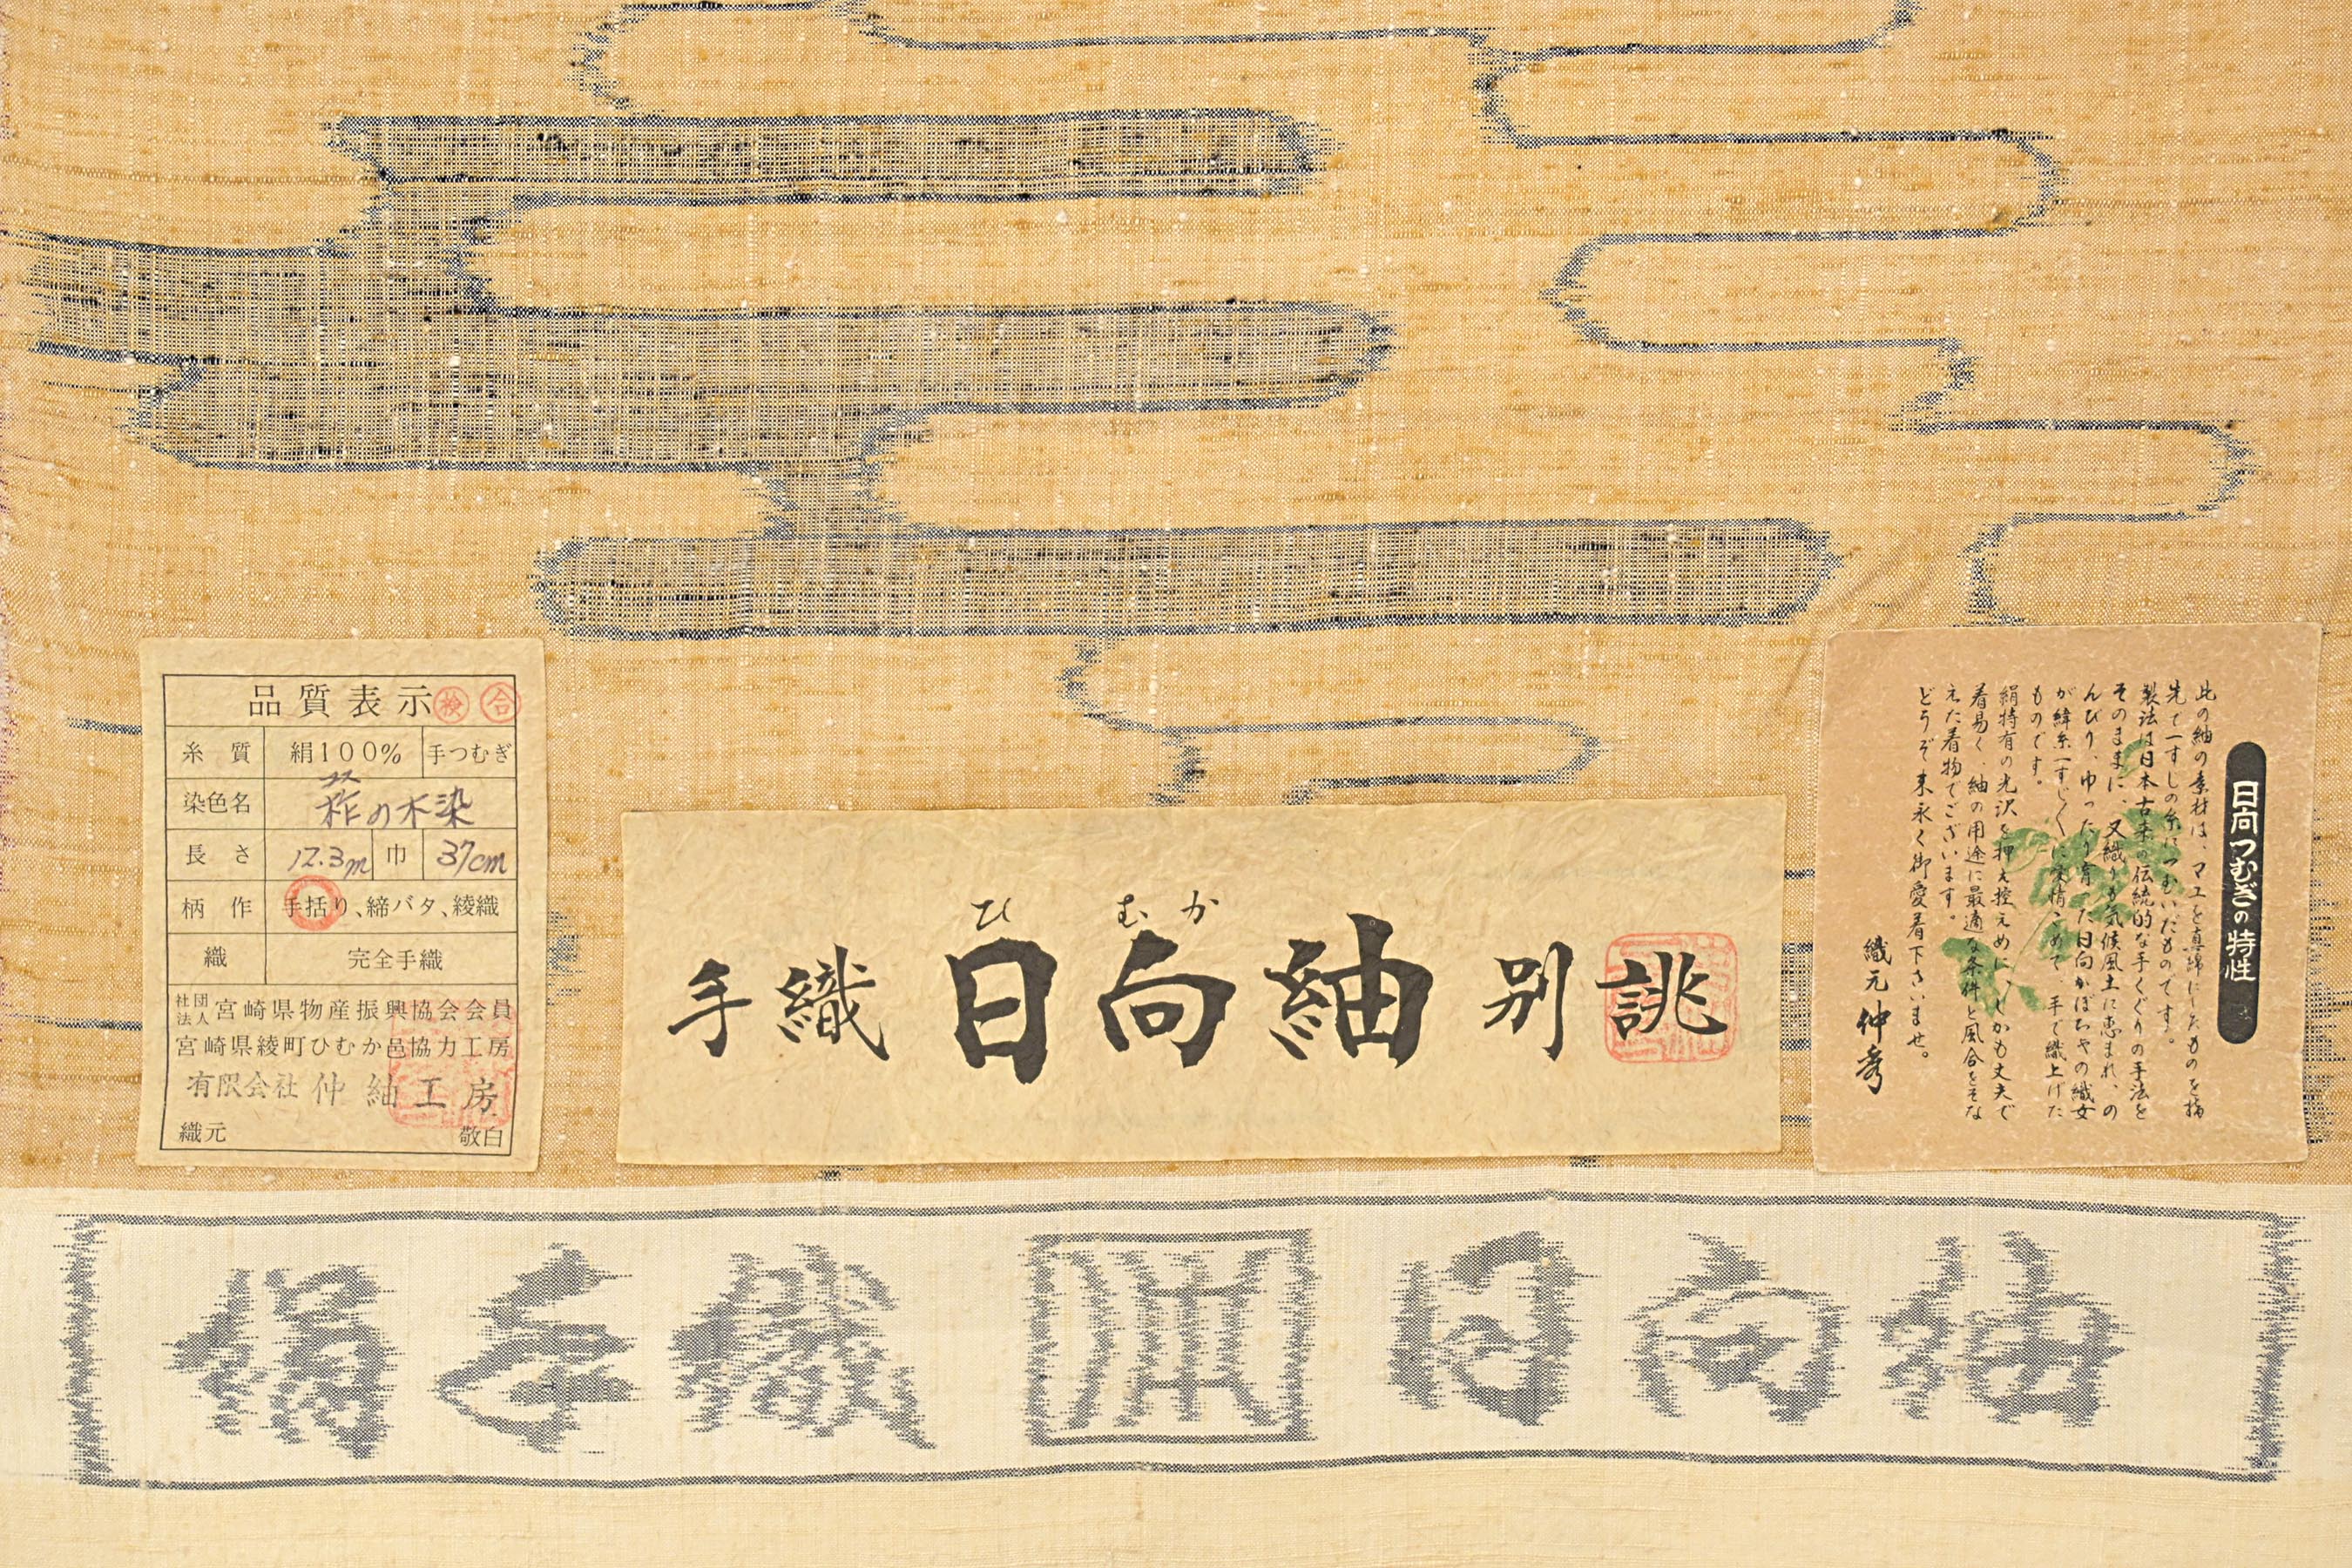 品質表示 検 合
糸質 絹100% 手つむぎ
染色名 の木染
長さ 12.3m 巾 37cm
柄作 手括り、締バタ、綾織
織 完全手織
社団法人 宮崎県物産振興協会会員
宮崎県綾町ひむか邑協力工房
有限会社 仲紬工房
織元 敬白
ひ むか
手織 日向紬 別誂
日向つむぎの特性
此の紬の素材は、マユを真綿にしたものを指
先で一すしの糸につむいだものです。
製法は日本古来の伝統的な手くぐりの手法を
そのままに、又織りも気候風土に恵まれ、の
んびり、ゆったり育った日向かぼちゃの織女
が緯糸一すじ〱に愛情こめて、手で織上げた
ものです。
絹特有の光沢を押え控えめに、しかも丈夫で
着易く、紬の用途に最適な条件と風合をそな
えた着物でございます。
どうぞ末永く御愛着下さいませ。
織元 仲秀
絹手織 日向紬